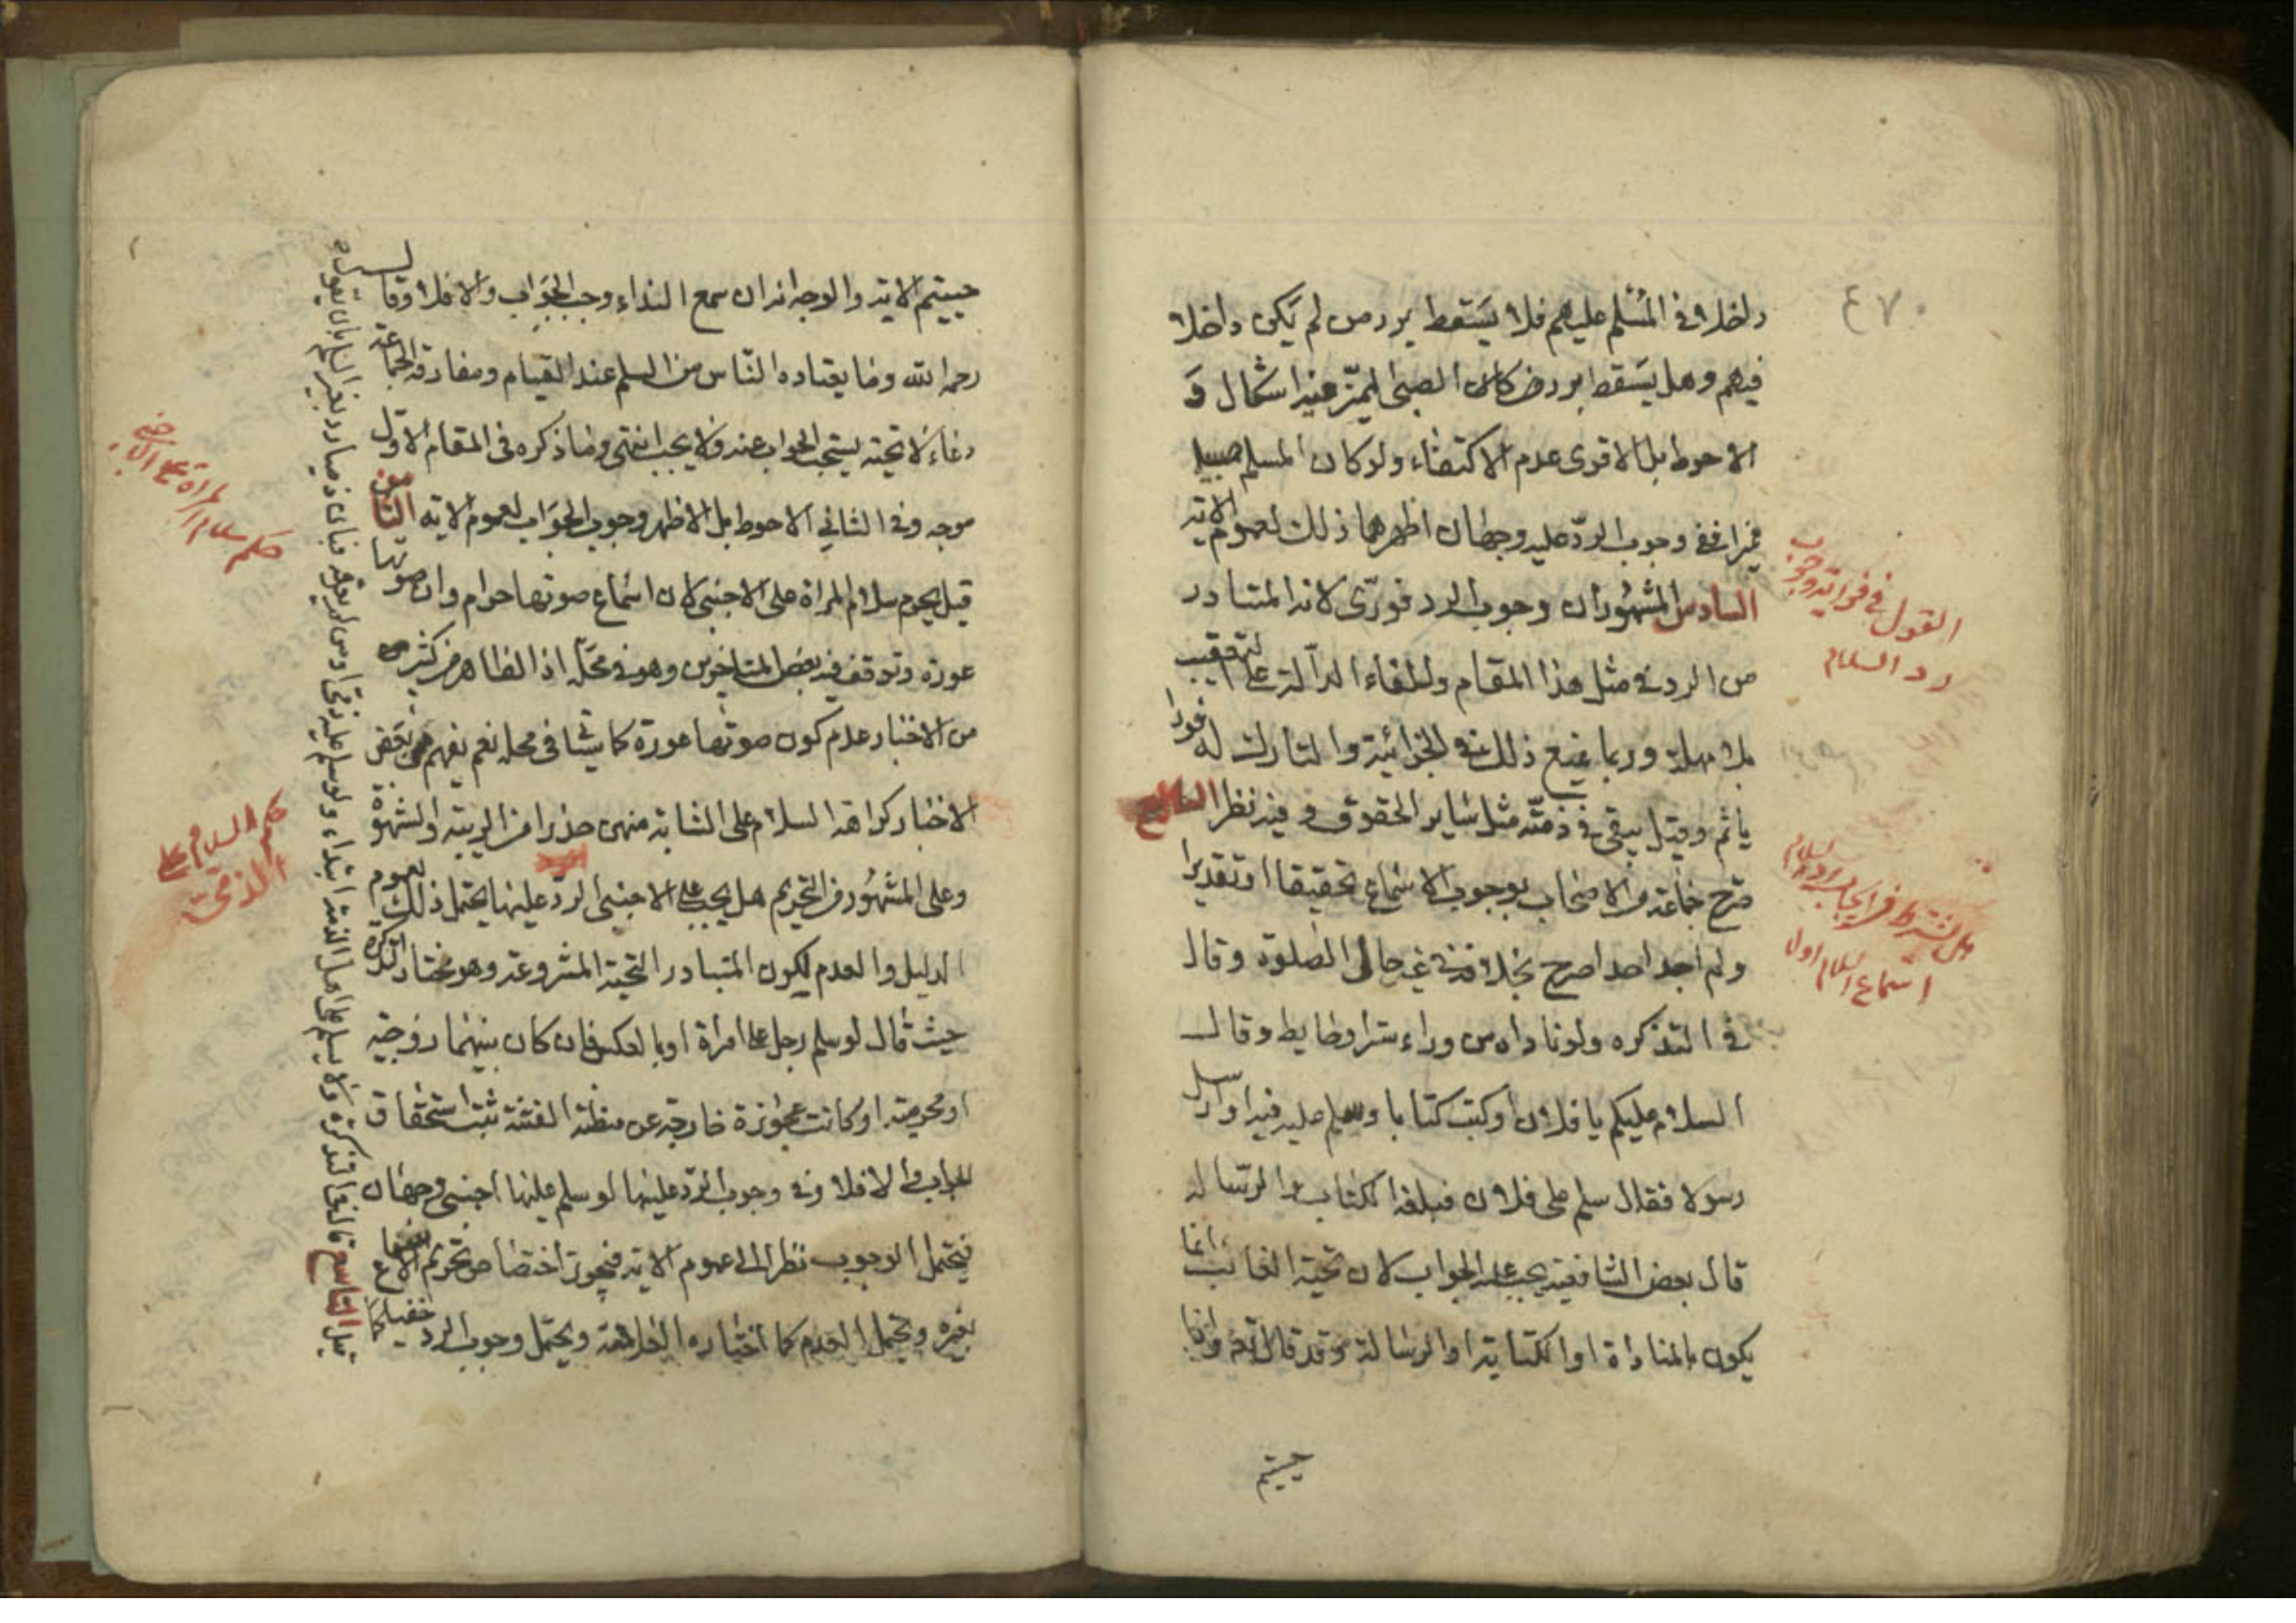 ٤٧٠
داخلا في المسلم عليهم فلا يسقط برد من لم يكن داخلا
فيهم وهل يسقط برد من كان الصبي المميز فيه اشكال و
الاحوط بل الاقوى عدم الاكتفاء ولو كان المسلم صبيا
مميزا ففي وجوب الرد عليه وجهان اظهرهما ذلك لعموم الاية
السادس المشهور ان وجوب الرد فوري لانه المتبادر
من الرد في مثل هذا المقام وللفاء الدالة على التعقيب
بلا مهلة وربما يمنع ذلك في الجزائية والتارك له فورا
ياثم وقيل يبقى في ذمته مثل ساير الحقوق وفيه نظر السابع
صرح جماعة من الاصحاب بوجوب الاسماع تحقيقا او تقديرا
ولم اجد احدا صرح بخلافه في غير حال الصلوة وقال
في التذكره ولو ناداه من وراء ستر او حايط وقال
السلام عليكم يا فلان او كتب كتابا وسلم عليه فيه او ارسل
رسولا فقال سلم على فلان فبلغه الكتاب والرسالة
قال بعض الشافعية يجب عليه الجواب لان تحية الغائب انما
يكون بالمناداة او الكتابة او الرسالة وقد قال تع واذا
حييتم
القول في فورية وجوب
رد السلام
هل يشترط في ايجاب رد السلام
اسماع السلام اولا
حييتم الاية والوجه انه ان سمع النداء وجب الجواب والا فلا وقال
رحمه الله وما يعتاده الناس من السلم عند القيام ومفارقة الجماعة
دعاء لا تحية يستحب الجواب عنه ولا يجب انتهى وما ذكره في المقام الاول
موجه وفي الثاني الاحوط بل الاظهر وجوب الجواب لعموم الاية الثامن
قيل يحرم سلام المراة على الاجنبي لان اسماع صوتها حرام وان صوتها
عورة وتوقف فيه بعض المتاخرين وهو في محله اذ الظاهر من كثير
من الاخبار عدم كون صوتها عورة كما سياتي في محله نعم يفهم من بعض
الاخبار كراهة السلام على الشابة منهن حذرا من الريبة والشهوة
وعلى المشهور من التحريم هل يجب على الاجنبي الرد عليها يحتمل ذلك لعموم
الدليل والعدم لكون المتبادر التحية المشروعة وهو مختار التذكره
حيث قال لو سلم رجل على امراة او بالعكس فان كان بينهما زوجية
او محرمية او كانت عجوزة خارجة عن مظنة الفتنة ثبت استحقاق
الجواب والا فلا وفي وجوب الرد عليها لو سلم عليها اجنبي وجهان
فيحتمل الوجوب نظرا الى عموم الاية فيجوز اختصاص تحريم الاسماع
بغيره ويحتمل العدم كما اختاره العلامة ويحتمل وجوب الرد خفيا كما
قيل التاسع قال في التذكرة ولا يسلم على اهل الذمة ابتداء ولو سلم عليه ذمي او من لم يعرفه فبان ذميا رد بغير السلم بان يقول
حكم سلام المراة على الاجنبي
حكم السلام على
الذمي